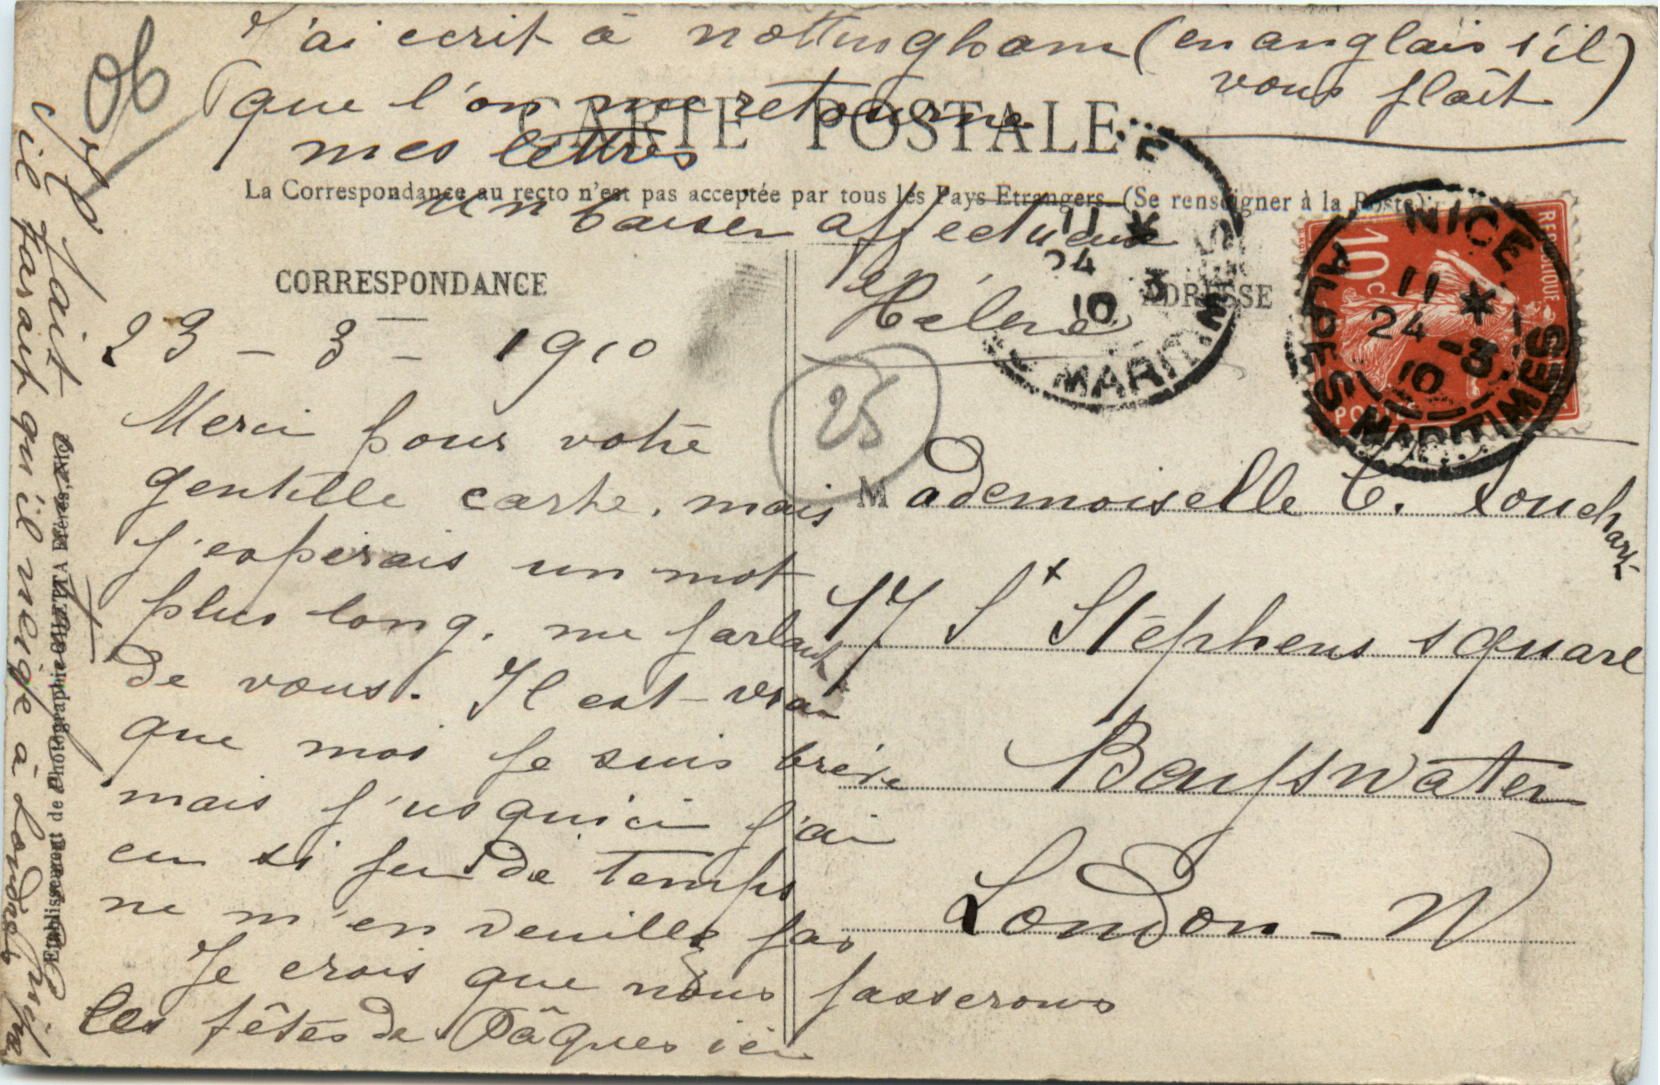 J'ai ecrit à nottingham (en anglais s'il
vous plait)
que l'on me retourne
mes lettres
un baiser affectueux
Hélène
CARTE POSTALE
La Correspondance au recto n'est pas acceptée par tous les Pays Etrangers. (Se renseigner à la Poste).
CORRESPONDANCE
ADRESSE
23 - 3 - 1910
Merci pour votre
gentille carte, mais
j'esperais un mot
plus long, me parlant
de vous. Il est vrai
que moi je suis brève
mais j'usqu'ici j'ai
eu si peu de temps
ne m'en veuillez pas
Je crois que nous passerons
les fêtes de Pâques ici
Il fait
il parait qu'il neige à Londres
Etablissement de Photographie Frères,
25
Mademoiselle C. Louchart
17 St Stephens square
Bayswater
London - W
NICE
11 *
24 -3
10
ALPES MARITIMES
11 *
24 3
10
MARITIMES
REPUBLIQUE
10c
POSTES